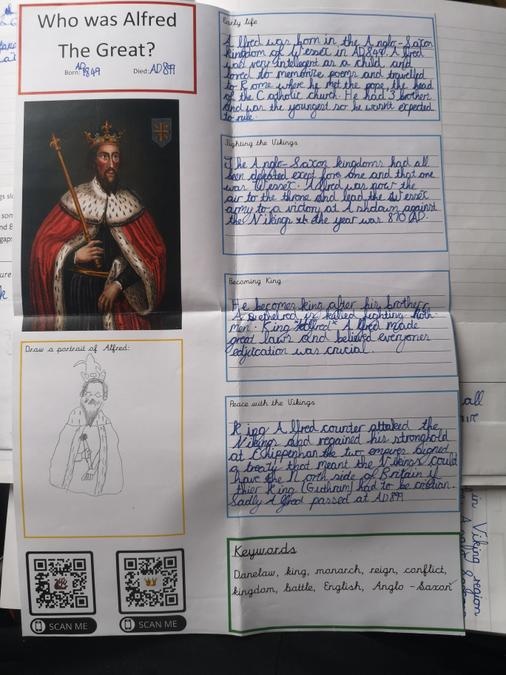 Who was Alfred
The Great?
Born: AD 849 Died: AD 899
Draw a portrait of Alfred:
SCAN ME
SCAN ME
Early life
Alfred was born in the Anglo-Saxon
kingdom of Wessex in AD849. Alfred
was very intellegent as a child and
loved to memorise poems and travelled
to Rome where he met the pope, the head
of the Catholic church. He had 3 brothers
and was the youngest so he wasn't expected
to rule.
Fighting the Vikings
The Anglo-Saxon kingdoms had all
been defeated except for one and that one
was Wessex. Alfred was now the
air to the throne and lead the Wessex
army to a victory at Ashdown against
the Vikings the year was 870 AD.
Becoming King
He becomes king after his brother
is killed fighting
men. King Alfred made
great laws and believed everyones
edjucation was crucial.
Peace with the Vikings
King Alfred counter attaked the
Vikings and regained his stronghold
at Chippenham the two empires signed
a treaty that meant the Vikings could
have the North side of Britain if
thier King (Guthrum) had to be
Sadly Alfred passed at AD899
Keywords
Danelaw, king, monarch, reign, conflict,
kingdom, battle, English, Anglo-Saxon
all
in Viking region